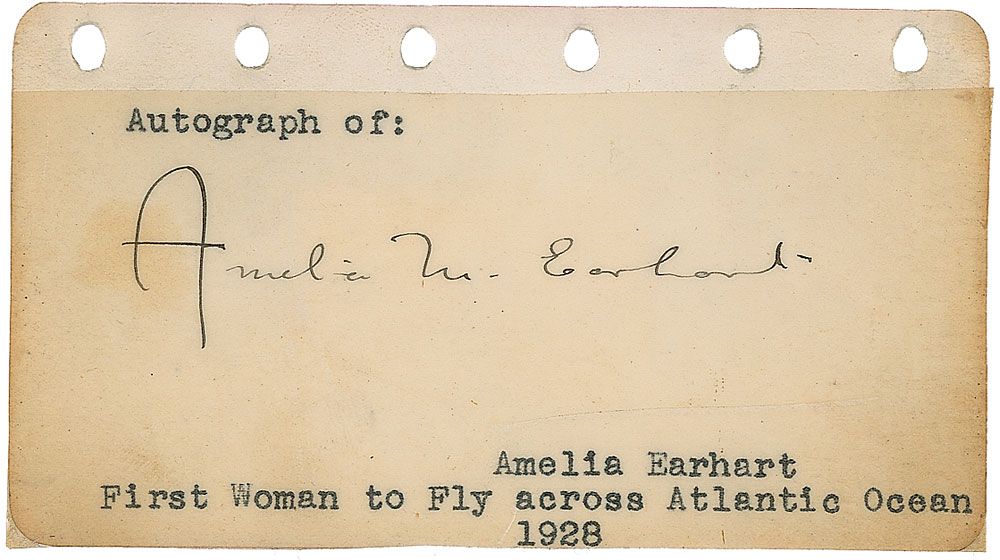 Autograph of:
Amelia M. Earhart
Amelia Earhart
First Woman to Fly across Atlantic Ocean
1928